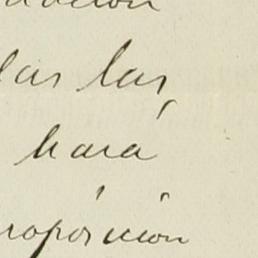 las las,
hará
roposición